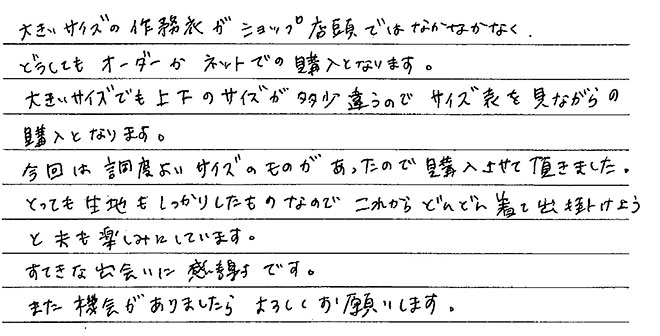 大きいサイズの作務衣がショップ店頭ではなかなかなく、
どうしてもオーダーかネットでの購入となります。
大きいサイズでも上下のサイズが多少違うのでサイズ表を見ながらの
購入となります。
今回は調度よいサイズのものがあったので購入させて頂きました。
とっても生地もしっかりしたものなのでこれからどんどん着て出掛けよう
と夫も楽しみにしています。
すてきな出会いに感謝です。
また機会がありましたらよろしくお願いします。